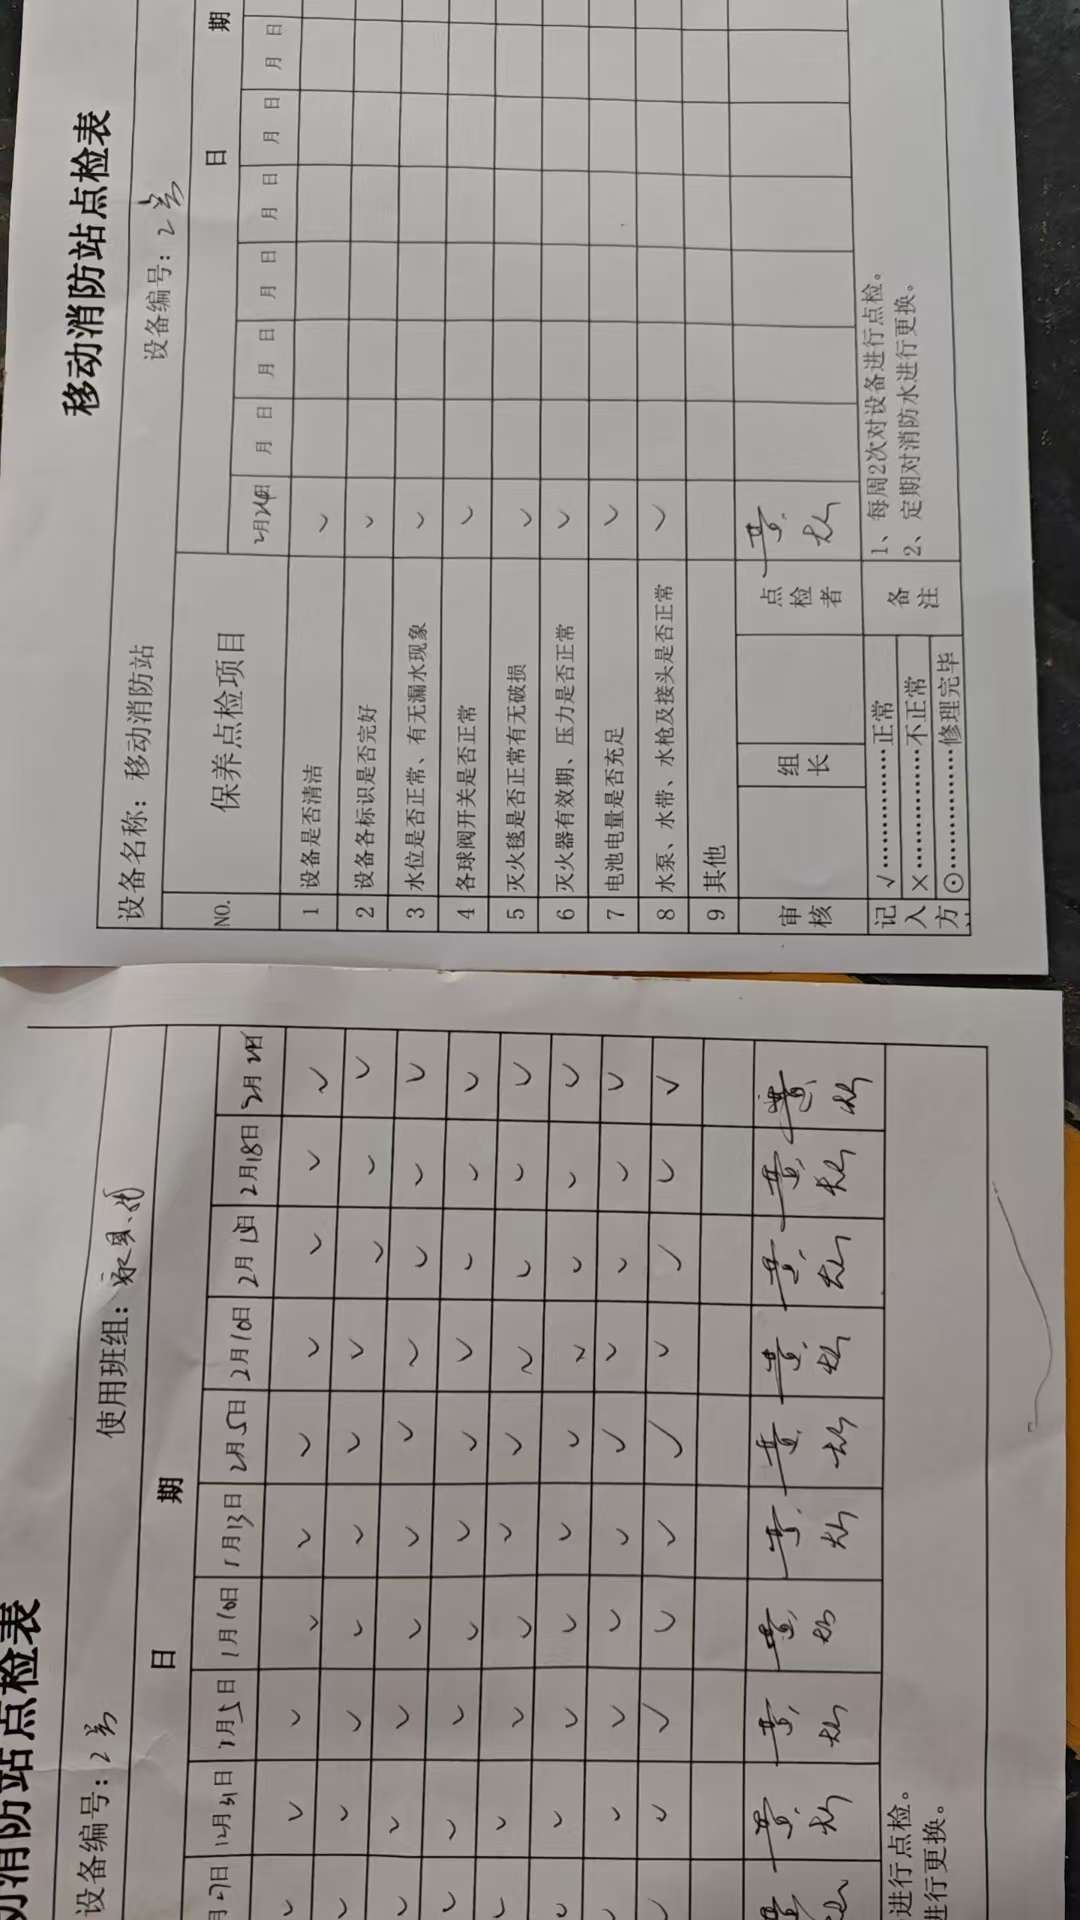 移动消防站点检表
设备名称：移动消防站 设备编号：2号
NO. 保养点检项目 日 期
2月24日 月 日 月 日 月 日 月 日 月 日 月 日
1 设备是否清洁 ✓
2 设备各标识是否完好 ✓
3 水位是否正常、有无漏水现象 ✓
4 各球阀开关是否正常 ✓
5 灭火毯是否正常有无破损 ✓
6 灭火器有效期、压力是否正常 ✓
7 电池电量是否充足 ✓
8 水泵、水带、水枪及接头是否正常 ✓
9 其他
审核 组长 点检者 黄
记入方 √…………正常
×…………不正常
⊙…………修理完毕
备注
1、每周2次对设备进行点检。
2、定期对消防水进行更换。
动消防站点检表
设备编号：2号 使用班组：
日 期
月27日 12月31日 1月5日 1月10日 1月13日 2月5日 2月10日 2月 日 2月18日 2月 日
✓ ✓ ✓ ✓ ✓ ✓ ✓ ✓ ✓ ✓
✓ ✓ ✓ ✓ ✓ ✓ ✓ ✓ ✓ ✓
✓ ✓ ✓ ✓ ✓ ✓ ✓ ✓ ✓ ✓
✓ ✓ ✓ ✓ ✓ ✓ ✓ ✓ ✓ ✓
✓ ✓ ✓ ✓ ✓ ✓ ✓ ✓ ✓ ✓
✓ ✓ ✓ ✓ ✓ ✓ ✓ ✓ ✓ ✓
✓ ✓ ✓ ✓ ✓ ✓ ✓ ✓ ✓ ✓
✓ ✓ ✓ ✓ ✓ ✓ ✓ ✓ ✓ ✓
黄 黄 黄 黄 黄 黄 黄 黄 黄 黄
进行点检。
进行更换。